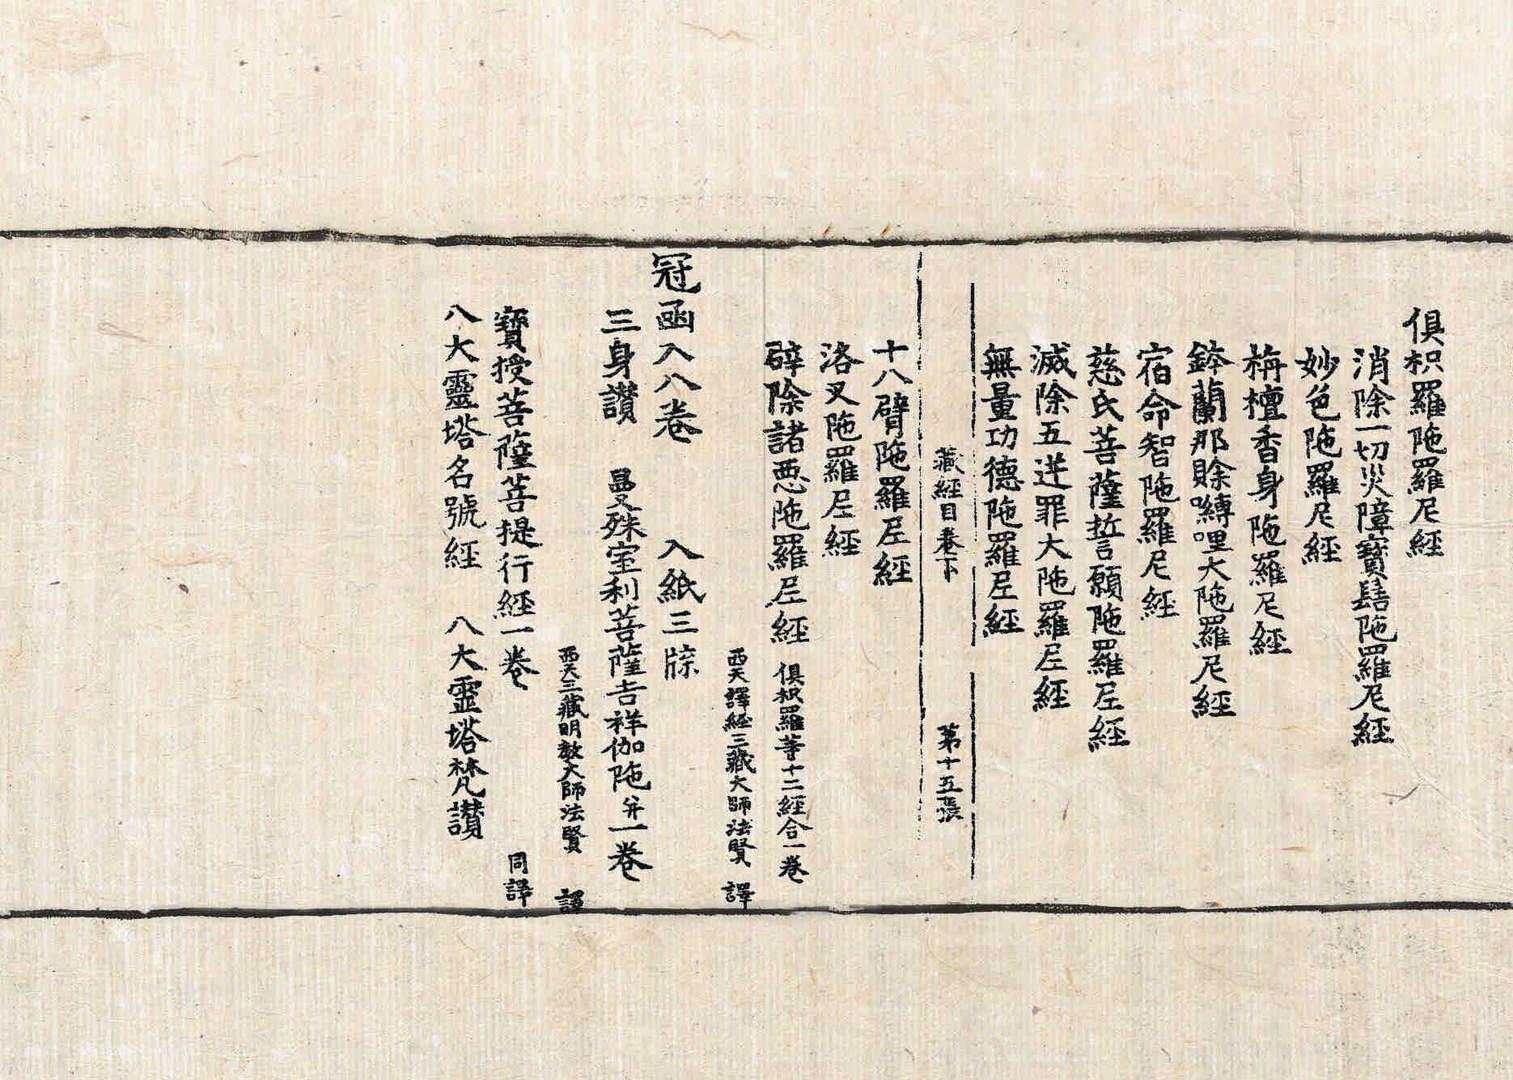 俱枳羅陁羅尼經
消除一切災障寶髻陁羅尼經
妙色陁羅尼經
栴檀香身陁羅尼經
鉢蘭那賒嚩哩大陁羅尼經
宿命智陁羅尼經
慈氏菩薩誓願陁羅尼經
滅除五逆罪大陁羅尼經
無量功德陁羅尼經
藏經目卷下 第十五張
十八臂陁羅尼經
洛叉陁羅尼經
辟除諸惡陁羅尼經 俱枳羅等十二經合一卷
西天譯經三藏大師法賢 譯
冠函入八卷 入紙三牒
三身讃 曼殊室利菩薩吉祥伽陁 并一卷
西天三藏明教大師法賢 譯
寶授菩薩菩提行經一卷 同譯
八大靈塔名號經 八大靈塔梵讃